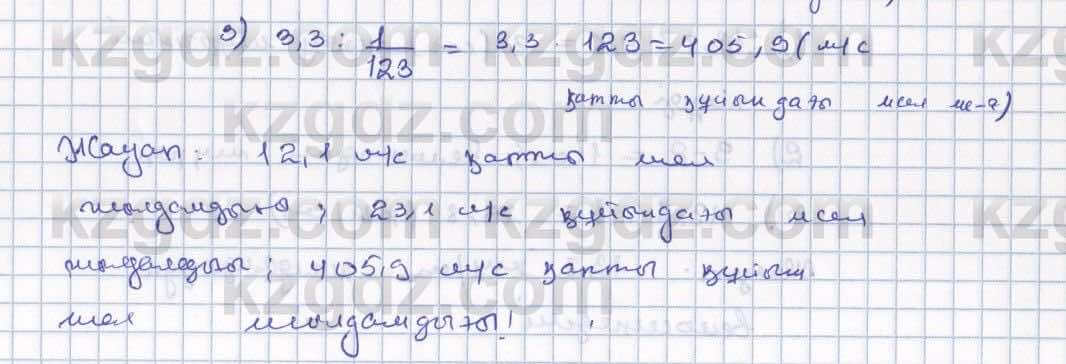 3) 3,3 : 1/123 = 3,3 · 123 = 405,9 (м/с
қатты құйындағы жел ж-ғ)
Жауап: 12,1 м/с қатты жел
жылдамдығы; 23,1 м/с құйындағы жел
жылдамдығы; 405,9 м/с қатты құйын
жел жылдамдығы!
kzgdz.com